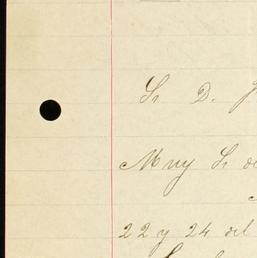 Sr D. J
Muy Sr de
22 y 24 del